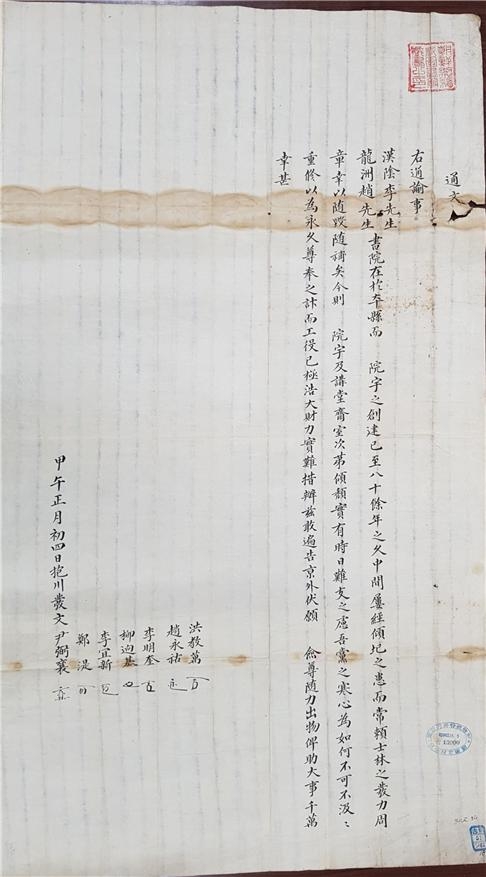 通文
右通諭事
漢陰李先生
龍洲趙先生 書院在於本縣而 院宇之創建已至八十餘年之久中間屢經傾圮之患而常賴士林之發力周
章幸以隨毁随補矣今則 院宇及講堂齋室次第傾頹實有時日難支之慮吾黨之寒心爲如何不可不汲〻
重修以爲永久尊奉之計而工役已極浩大財力實難措辦玆敢遍告京外伏願 僉尊随力出物俾助大事千萬
幸甚
洪敎萬
趙永祜
李明奎
柳迥基
李宜新
鄭湜
甲午正月初四日抱川發文尹弼襄